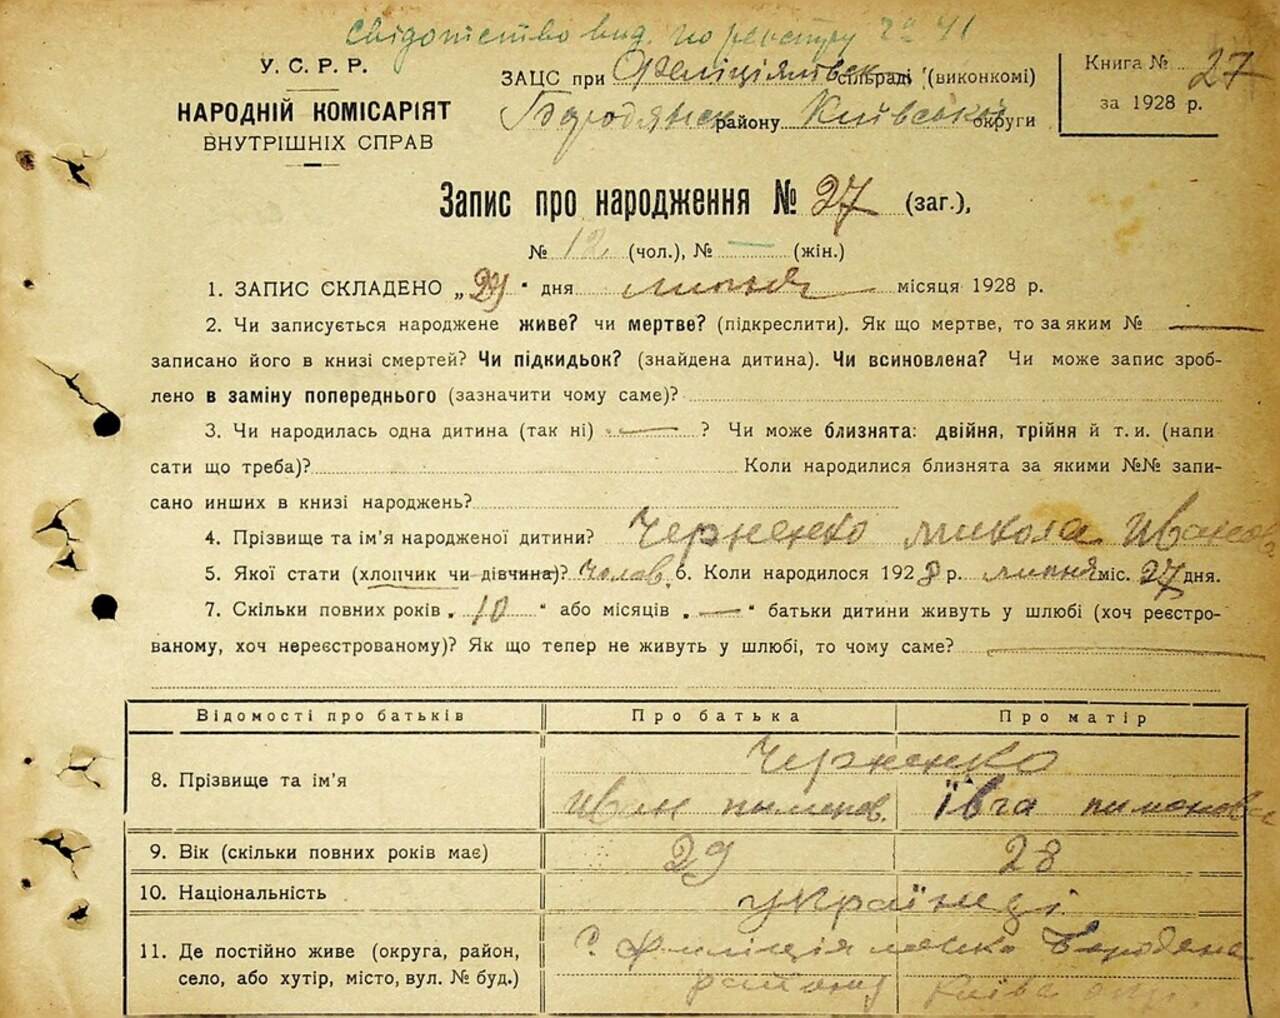 Свідотство вид. по реєстру № 41
У. С. Р. Р.
НАРОДНІЙ КОМІСАРІЯТ
ВНУТРІШНІХ СПРАВ
ЗАЦС при сільраді (виконкомі)
Бородянськ району Київської округи
Книга № 27
за 1928 р.
Запис про народження № 27 (заг.),
№ 12 (чол.), № — (жін.)
1. ЗАПИС СКЛАДЕНО „29" дня липня місяця 1928 р.
2. Чи записується народжене живе? чи мертве? (підкреслити). Як що мертве, то за яким № —
записано його в книзі смертей? Чи підкидьок? (знайдена дитина). Чи всиновлена? Чи може запис зроб-
лено в заміну попереднього (зазначити чому саме)?
3. Чи народилась одна дитина (так ні) — ? Чи може близнята: двійня, трійня й т. и. (напи
сати що треба)? Коли народилися близнята за якими №№ запи-
сано инших в книзі народжень?
4. Прізвище та ім'я народженої дитини? Черненко Микола Иванов
5. Якої стати (хлопчик чи дівчина)? Чолов. 6. Коли народилося 1928 р. липня міс. 27 дня.
7. Скільки повних років „10" або місяців „—" батьки дитини живуть у шлюбі (хоч реєстро-
ваному, хоч нереєстрованому)? Як що тепер не живуть у шлюбі, то чому саме? —
Відомості про батьків Про батька Про матір
8. Прізвище та ім'я Черненко
Иван пименов. Ївга пименова
9. Вік (скільки повних років має) 29 28
10. Національність українці
11. Де постійно живе (округа, район,
село, або хутір, місто, вул. № буд.)
с. Бородянс
району Київс окр.